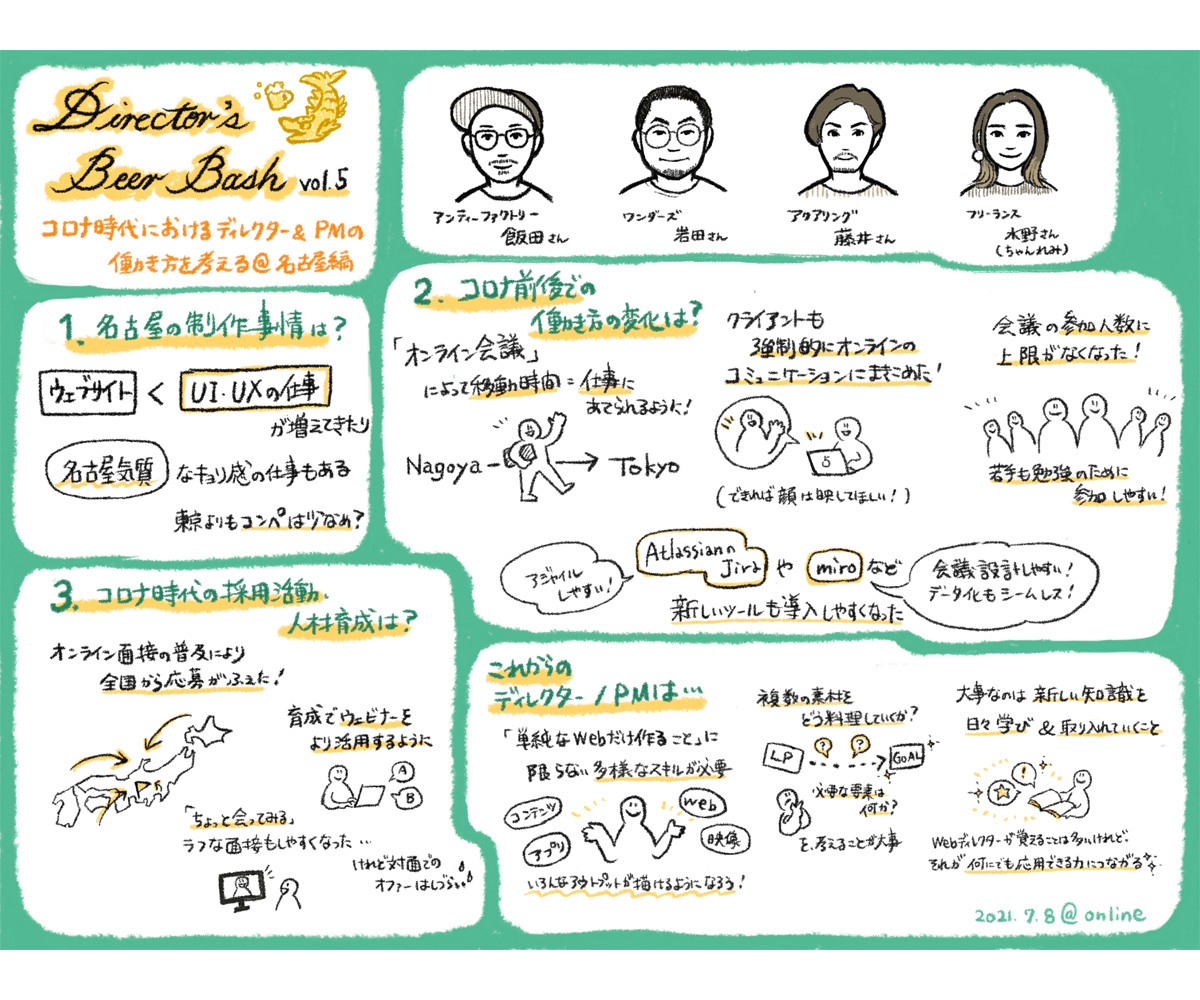 Director's
Beer Bash vol.5
コロナ時代におけるディレクター& PMの
働き方を考える@名古屋編
アンティーファクトリー
飯田さん
ワンダーズ
岩田さん
アクアリング
藤井さん
フリーランス
水野さん
(ちゃんれみ)
1. 名古屋の制作事情は?
ウェブサイト < UI・UXの仕事
が増えてきたり
名古屋気質 なキョリ感の仕事もある
東京よりもコンペは少なめ?
2. コロナ前後での
働き方の変化は?
「オンライン会議」
によって移動時間=仕事に
あてられるように!
Nagoya → Tokyo
クライアントも
強制的にオンラインの
コミュニケーションにまきこめた!
(できれば顔は映してほしい!)
会議の参加人数に
上限がなくなった!
若手も勉強のために
参加しやすい!
アジャイル
しやすい!
Atlassianの
Jira や miro など
新しいツールも導入しやすくなった
会議設計しやすい!
データ化もシームレス!
3. コロナ時代の採用活動、
人材育成は?
オンライン面接の普及により
全国から応募がふえた!
育成でウェビナーを
より活用するように
A
B
「ちょっと会ってみる」
ラフな面接もしやすくなった…
けれど対面での
オファーはしづらい
これからの
ディレクター/PMは…
「単純なWebだけ作ること」に
限らない多様なスキルが必要
コンテンツ
web
アプリ
映像
いろんなアウトプットが描けるようになろう!
複数の素材を
どう料理していくか?
LP ? ? GOAL
必要な要素は
何か?
を、考えることが大事
大事なのは 新しい知識を
日々学び & 取り入れていくこと
!
Webディレクターが覚えることは多いけれど、
それが何にでも応用できる力につながる
2021.7.8@online